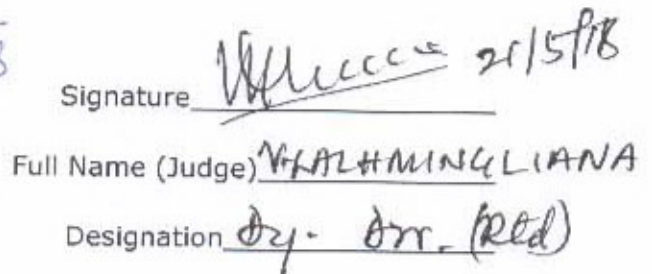 Signature 21/5/18
Full Name (Judge) V.LALHMINGLIANA
Designation Dy. Dir. (Rtd)